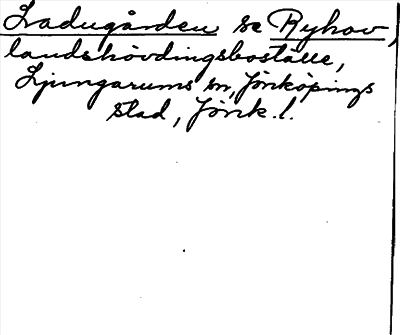 Ladugården se Ryhov,
landshövdingsboställe,
Ljungarums sn, Jönköpings
stad, Jönk. l.